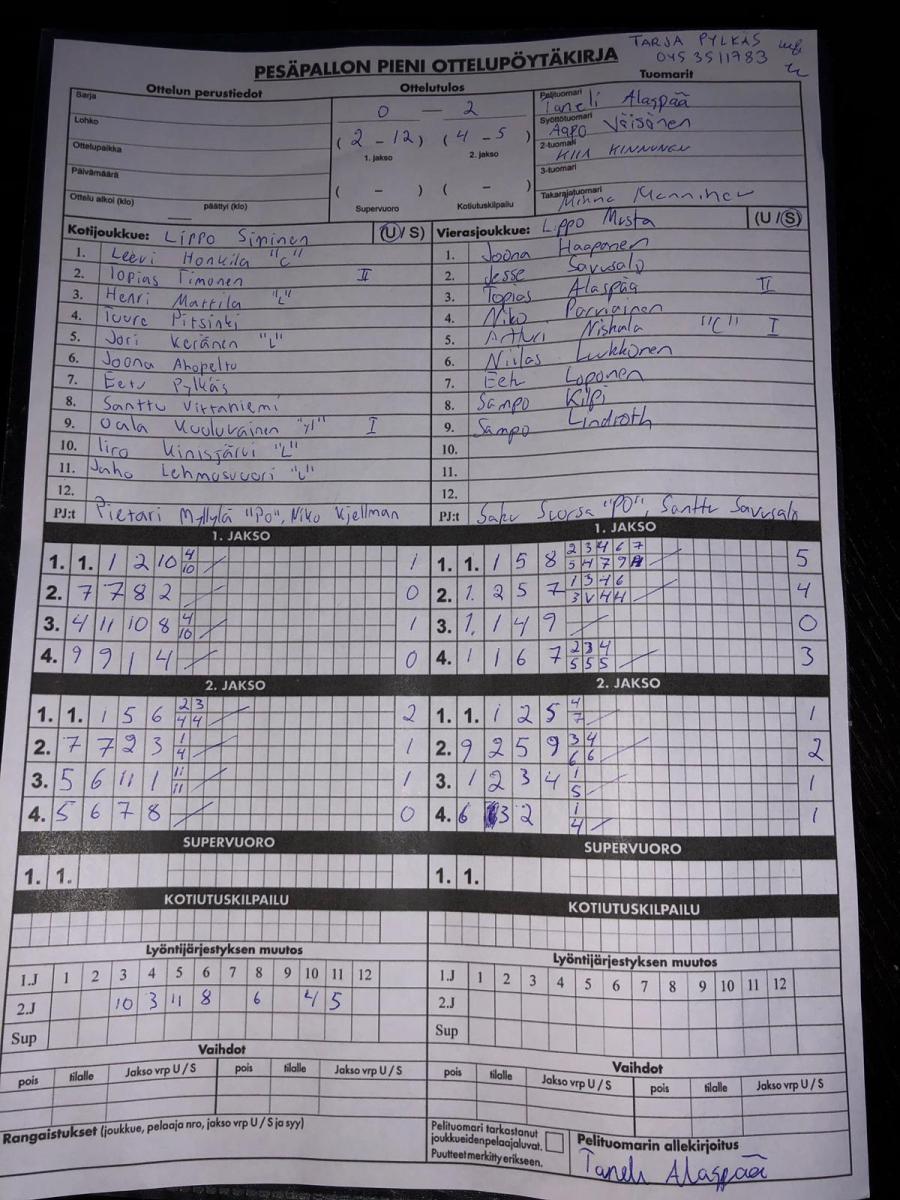 TARJA PYLKÄS
045 3511783
PESÄPALLON PIENI OTTELUPÖYTÄKIRJA
Ottelun perustiedot
Ottelutulos
Tuomarit
Sarja
Lohko
Ottelupaikka
Päivämäärä
Ottelu alkoi (klo) päättyi (klo)
0 – 2
( 2 – 12 ) ( 4 – 5 )
1. jakso 2. jakso
( – ) ( – )
Supervuoro Kotiutuskilpailu
Pelituomari
Taneli Alaspää
Syöttötuomari
Aapo Väisänen
2-tuomari
KIIA KINNUNEN
3-tuomari
Takarajatuomari
Minna Manninen
Kotijoukkue: Lippo Sininen (U / S)
1. Leevi Honkila "C"
2. Topias Timonen II
3. Henri Mattila "L"
4. Tuure Pitsinki
5. Jori Keränen "L"
6. Joona Ahopelto
7. Eetu Pylkäs
8. Santtu Virtaniemi
9. I
10. Iiro Kinisjärvi "L"
11. Juho Lehmusvuori "L"
12.
PJ:t Pietari Myllylä "PO", Niko Kjellman
Vierasjoukkue: Lippo Musta (U / S)
1. Joona Haaponen
2. Jesse Savusalo
3. Topias Alaspää II
4. Niko Parviainen
5. Artturi Niskala "C" I
6. Niilas Lukkonen
7. Eeti Loponen
8. Sampo Kilpi
9. Sampo Lindroth
10.
11.
12.
PJ:t Saku Suorsa "PO", Santtu Savusalo
1. JAKSO
1. 1. 1 2 10 4 1
10
2. 7 7 8 2 0
3. 4 11 10 8 4 1
10
4. 9 9 1 4 0
1. JAKSO
1. 1. 1 5 8 2 3 4 6 7 5
5 4 7 9
2. 1. 2 5 7 1 3 4 6 4
3 V 4 4
3. 1. 1 4 9 0
4. 1 1 6 7 2 3 4 3
5 5 5
2. JAKSO
1. 1. 1 5 6 2 3 2
4 4
2. 7 7 2 3 1 1
4
3. 5 6 11 1 11 1
11
4. 5 6 7 8 0
2. JAKSO
1. 1. 1 2 5 4 1
7
2. 9 2 5 9 3 4 2
6 6
3. 1 2 3 4 1 1
5
4. 6 3 2 1 1
4
SUPERVUORO
1. 1.
SUPERVUORO
1. 1.
KOTIUTUSKILPAILU
KOTIUTUSKILPAILU
Lyöntijärjestyksen muutos
1.J 1 2 3 4 5 6 7 8 9 10 11 12
2.J 10 3 11 8 6 4 5
Sup
Lyöntijärjestyksen muutos
1.J 1 2 3 4 5 6 7 8 9 10 11 12
2.J
Sup
Vaihdot
pois tilalle Jakso vrp U / S pois tilalle Jakso vrp U / S
Vaihdot
pois tilalle Jakso vrp U / S pois tilalle Jakso vrp U / S
Rangaistukset (joukkue, pelaaja nro, jakso vrp U / S ja syy)
Pelituomari tarkastanut
joukkueidenpelaajaluvat.
Puutteet merkitty erikseen.
Pelituomarin allekirjoitus
Taneli Alaspää